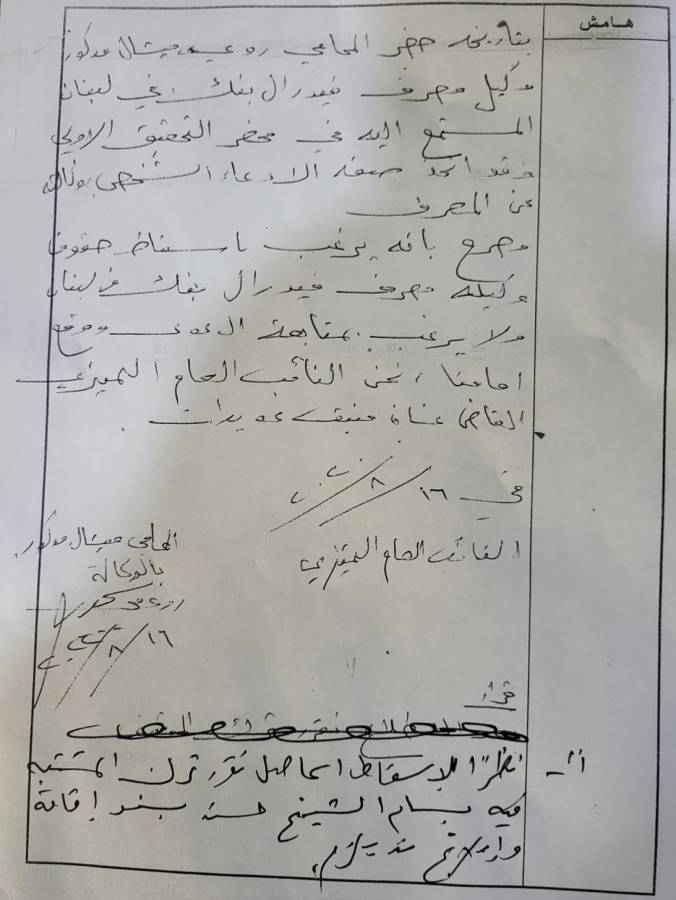 هامش
بتاريخه حضر المحامي روعي ميشال مدكور
وكيل مصرف فيدرال بنك في لبنان
المستمع اليه في محضر التحقيق الاولي
وقد اتخذ صفة الادعاء الشخصي بوكالته
عن المصرف
وصرح بانه يرغب باسقاط حقوق
وكيله مصرف فيدرال بنك في لبنان
ولا يرغب بمتابعة الدعوى ووقع
امامنا، نحن النائب العام التمييزي
القاضي غسان منيف عويدات.
في ١٦/٨/
النائب العام التمييزي
المحامي ميشال مدكور
بالوكالة
١٦/٨/
قرار
نظرًا للإسقاط الحاصل نقرر ترك المشتبه
فيه بسام الشيخ حسين بسند إقامة
وإبلاغ من يلزم.